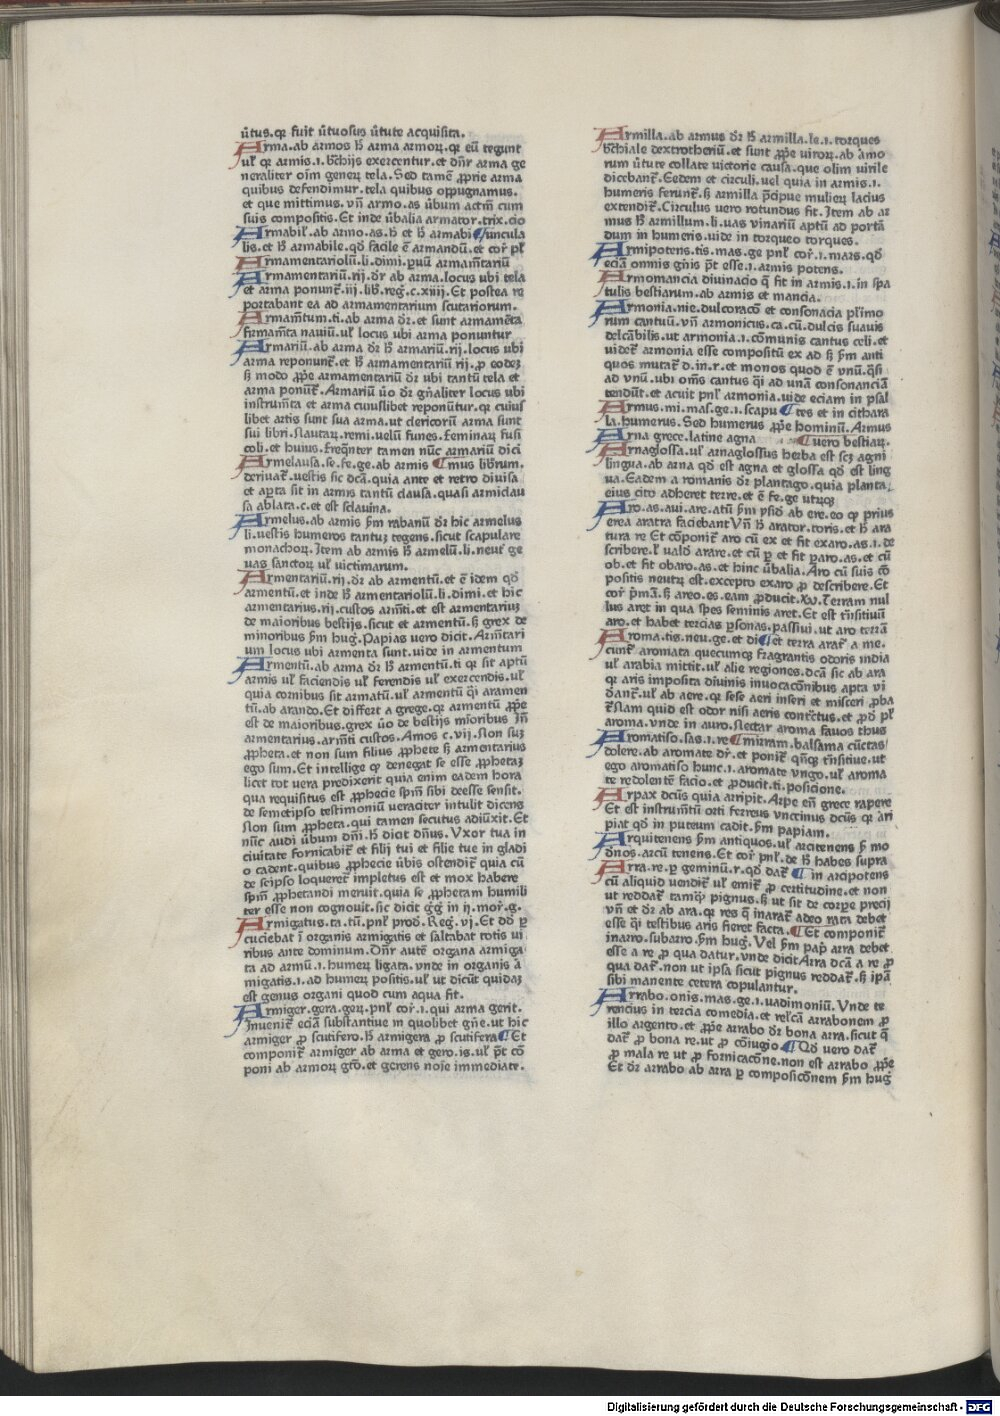 ũtus.qꝛ fuit ũtuosus ũtute acquisita.
Arma.ab armos hꝫ arma armoꝝ.qꝛ eũ tegunt
ul᷑ qꝛ armis.i.bͬchijs exercentur.et dr̄ arma ge
neraliter oīm geneꝝ tela. Sed tamē ꝓprie arma
quibus defendimur.tela quibus oppugnamus.
et que mittimus.vn̄ armo.as ũbum actiũ cum
suis compositis. Et inde ũbalia armator.trix.cio
Armabil᷑.ab armo.as.hꝫ et hꝫ armabi ¶uncula
lis.et hꝫ armabile.qđ facile ē armandũ.et cor̄ pl᷑
Armamentariolũ.li.dimi.ꝑuũ armam̄tariũ
Armamentariũ.rij.dr̄ ab arma.locus ubi tela
et arma ponunt᷑.iij.lib̄.reg̃.c.xiiij. Et postea re
portabant ea ad armamentarium scutariorum.
Armam̄tum.ti.ab arma dr̄.et sunt armamēta
firmam̄ta nauiũ.ul᷑ locus ubi arma ponuntur
Armariũ.ab arma dr̄ hꝫ armariũ.rij.locus ubi
arma reponunt᷑.et hꝫ armamentariũ rij.ꝓ eodeꝫ
ꝫ modo ꝓpͤ armamentariũ dr̄ ubi tantũ tela et
arma ponũt᷑. Armariũ ũo dr̄ gn̄aliter locus ubi
instrum̄ta et arma cuiuslibet reponũtur.qꝛ cuius
libet artis sunt sua arma.ut clericorũ arma sunt
sui libri. Nautaꝝ.remi.uelũ funes. feminaꝝ fusi
coli.et huius. Freqn̄ter tamen nũc armariũ dici
Armelausa.se.fe.ge.ab armis ¶mus librum.
deriuat᷑.uestis sic dc̄ã.quia ante et retro diuisa
et aꝑta sit in armis tantũ clausa.quasi armiclau
sa ablata.c.et est sclauina.
Armelus.ab armis ꝑm rabanũ dr̄ hic armelus
li.uestis humeros tantuꝫ tegens.sicut scapulare
monachoꝝ. Item ab armis hꝫ armelũ.li.neut᷑ ge
uas sanctoꝝ ul᷑ uictimarum.
Armentariũ.rij.dr̄.ab armentũ.et ē idem qđ
armentũ.et inde hꝫ armentariolũ.li.dimi.et hic
armentarius.rij.custos arm̄ti.et est armentariuꝫ
de maioribus bestijs.sicut et armentũ.ꝫ grex de
minoribus ꝑm hug̃. Papias uero dicit. Arm̄tari
um locus ubi armenta sunt.uide in armentum
Armentũ.ab arma dr̄ hꝫ armentũ.ti qꝛ sit aptũ
armis ul᷑ faciendis ul᷑ ferendis ul᷑ exercendis.ul᷑
quia cornibus sit armatũ.ul᷑ armentũ q̃i aramen
tũ.ab arando. Et differt a grege.qꝛ armentũ ꝓpͤ
est de maioribus.grex ũo de bestijs mīoribus Jn̄
armentarius.arm̄ti custos. Amos c.vij. Non suꝫ
ꝓpheta.et non sum filius ꝓphete ꝫ armentarius
ego sum. Et intellige qꝙ denegat se esse ꝓphetaꝫ
licet tot uera predixerit quia enim eadem hora
qua requisitus est ꝓphecie spm̄ sibi deesse sensit.
de semetipso testimoniũ ueraciter intulit dicens
Non sum ꝓpheta.qui tamen secutus adiũxit. Et
nũc audi ũbum dn̄i.hꝫ dicit dn̄us. Vxor tua in
ciuitate fornicabit᷑ et filij tui et filie tue in gladi
o cadent.quibus ꝓphecie ũbis ostendit᷑ quia cũ
de seipso loqueret᷑ impletus est et mox habere
spm̄ ꝓphetandi meruit.quia se ꝓphetam humili
ter esse non cognouit.sic dicit gg̃ in ij.mor̄.g.
Armigatus.ta.tũ.pnl᷑ prod̃. Reg̃.vj. Et dđ ꝑ
cuciebat ī organis armigatis et saltabat totis ui
ribus ante dominum. Dr̄ autē organa armiga
ta ad armũ.i.humeꝝ ligata.vnde in organis ā
migatis.i.ad humeꝝ positis.ul᷑ ut dicũt quidaꝫ
est genus organi quod cum aqua fit.
Armiger.gera.geꝝ.pnl᷑ cor̄.i.qui arma gerit.
Jnuenit᷑ eciā substantiue m quolibet gñe.ut hic
armiger ꝓ scutifero.hꝫ armigera ꝓ scutifera ¶Et
componit᷑ armiger ab arma et gero.is.ul᷑ pt̄ cō
poni ab armoꝝ gtõ.et gerens noīe immediate.
Armilla.ab armus dr̄ hꝫ armilla.le.i.torques
bͬchiale dextrotheriũ.et sunt ꝓpͤ uiroꝝ.ab āmo
rum ũtute collate uictorie causa.que olim uirile
dicebant᷑. Eedem et circuli.uel quia in armis.i.
humeris ferunt᷑.ꝫ armilla p̄cipue mulieꝝ lacius
extendit᷑. Circulus uero rotundus fit. Item ab ar
mus hꝫ armillum.li.uas uinariũ aptũ ad portā
dum in humeris.uide in torqueo torques.
Armipotens.tis.mas.ge pnl᷑ cor̄.i.mars.qđ
eciā omnis gñis pt̄ esse.i.armis potens.
Armomancia diuinacio q̄ fit in armis.i.in spa
tulis bestiarum.ab armis et mancia.
Armonia.nie.dulcoracō et consonacia pl᷑imo
rum cantuũ.vn̄ armonicus.ca.cũ.dulcis suauis
delcābilis.ut armonia.i.cōmunis cantus celi.et
uidet᷑ armonia esse compositũ ex ad ꝫ ꝑm anti
quos mutat᷑ .d.in.r.et monos quod ē vnũ.q̃si
ad vnũ.ubi om̄s cantus q̃i ad unā consonanciā
tendũt.et acuit pnl᷑ armonia.uide eciam in psal
Armus.mi.mas.ge.i.scapu ¶tes et in cithara
la.humerus. Sed humerus ꝓpͤ hominũ. Armus
Arna grece.latine agna ¶uero bestiaꝝ.
Arnaglossa.ul᷑ arnaglossus herba est scꝫ agni
lingua.ab arna qđ est agna et glossa qđ est ling
ua. Eadem a romanis dr̄ plantago.quia planta
eius cito adheret terre.et ē fe.ge utrūqꝫ
Aro.as.aui.are.atũ ꝑm psiđ ab ere.eo qꝙ prius
erea aratra faciebant Vn̄ hꝫ arator.toris.et hꝫ ara
tura re Et cōponit᷑ aro cũ ex et fit exaro.as.i.de
scribere.l᷑ ualđ arare.et cũ ꝑ et fit ꝑaro.as.et cũ
ob.et fit obaro.as.et hinc ũbalia. Aro cũ suis cō
positis neutꝝ est.excepto exaro ꝓ describere. Et
cor̄ p̄mā.ꝫ areo.es.eam ꝓducit.xv. Terram nul
lus aret in qua spes seminis aret. Et est trn̄sitiuũ
aro.et habet tercias ꝑsonas.passiui.ut aro terrā
Aroma.tis.neu.ge.et di ¶et terra arat᷑ a me.
cunt᷑ aromata quecumqꝫ fragrantis odoris india
ul᷑ arabia mittit.ul᷑ alie regiones.dc̄ā sic ab ara
qꝛ aris imposita diuinis inuocacōnibus apta vi
dant᷑.ul᷑ ab aere.qꝛ sese aeri inseri et misceri ꝓba
t᷑ Nam quid est odor nisi aeris contc̄tus.et ꝓđ pl᷑
aroma.vnde in auro.Nectar aroma fauos thus
Aromatiso.sas.i.re ¶mirram.balsama cũctas
dolere.ab aromate dr̄.et ponit᷑ qn̄qꝫ trn̄sitiue.ut
ego aromatiso hunc.i.aromate vngo.ul᷑ aroma
te redolentē facio.et ꝓducit.ti.posicione.
Arpax dc̄us quia arripit. Arpe eñ grece rapere
Et est instrum̄tũ orti ferreus vnccinus dc̄us qꝛ ari
piat qđ in puteum cadit.ꝑm papiam.
Arquitenens ꝑm antiquos.ul᷑ arcitenens ꝑ mo
đnos.arcũ tenens. Et cor̄ pnl᷑.de hꝫ habes supra
Arra.re.ꝑ geminũ.r.qđ dat᷑ ¶in arcipotens
cũ aliquid uendit᷑ ul᷑ emit᷑ ꝓ certitudine.et non
ut reddat᷑ tamqꝫ pignus.ꝫ ut sit de corꝑe precij
vn̄ et dr̄ ab ara.qꝛ res q̄ inarat᷑ adeo rata debet
esse q̃i testibus aris fieret facta.¶Et componit᷑
inarro.subarro.ꝑm hug̃. Vel ꝑm pap̄ arra debet
esse a re ꝓ qua datur.vnde dicit Arra dc̄ā a re ꝓ
qua dat᷑.non ut ipsa sicut pignus reddat᷑.ꝫ ipā
sibi manente cetera copulantur.
Arrabo.onis.mas.ge.i.uadimoniũ. Vnde te
rencius in tercia comedia.et relcā arrabonem ꝓ
illo argento.et ꝓpͤ arrabo dr̄ bona arra.sicut q̄
dat᷑ ꝓ bona re.ut ꝓ cōiugio.¶Qđ uero dat᷑
ꝓ mala re ut ꝓ fornicacōne.non est arrabo ꝓpͤ
Et dr̄ arrabo ab arra ꝑ composicōnem ꝑm hug̃
Digitalisierung gefördert durch die Deutsche Forschungsgemeinschaft - DFG